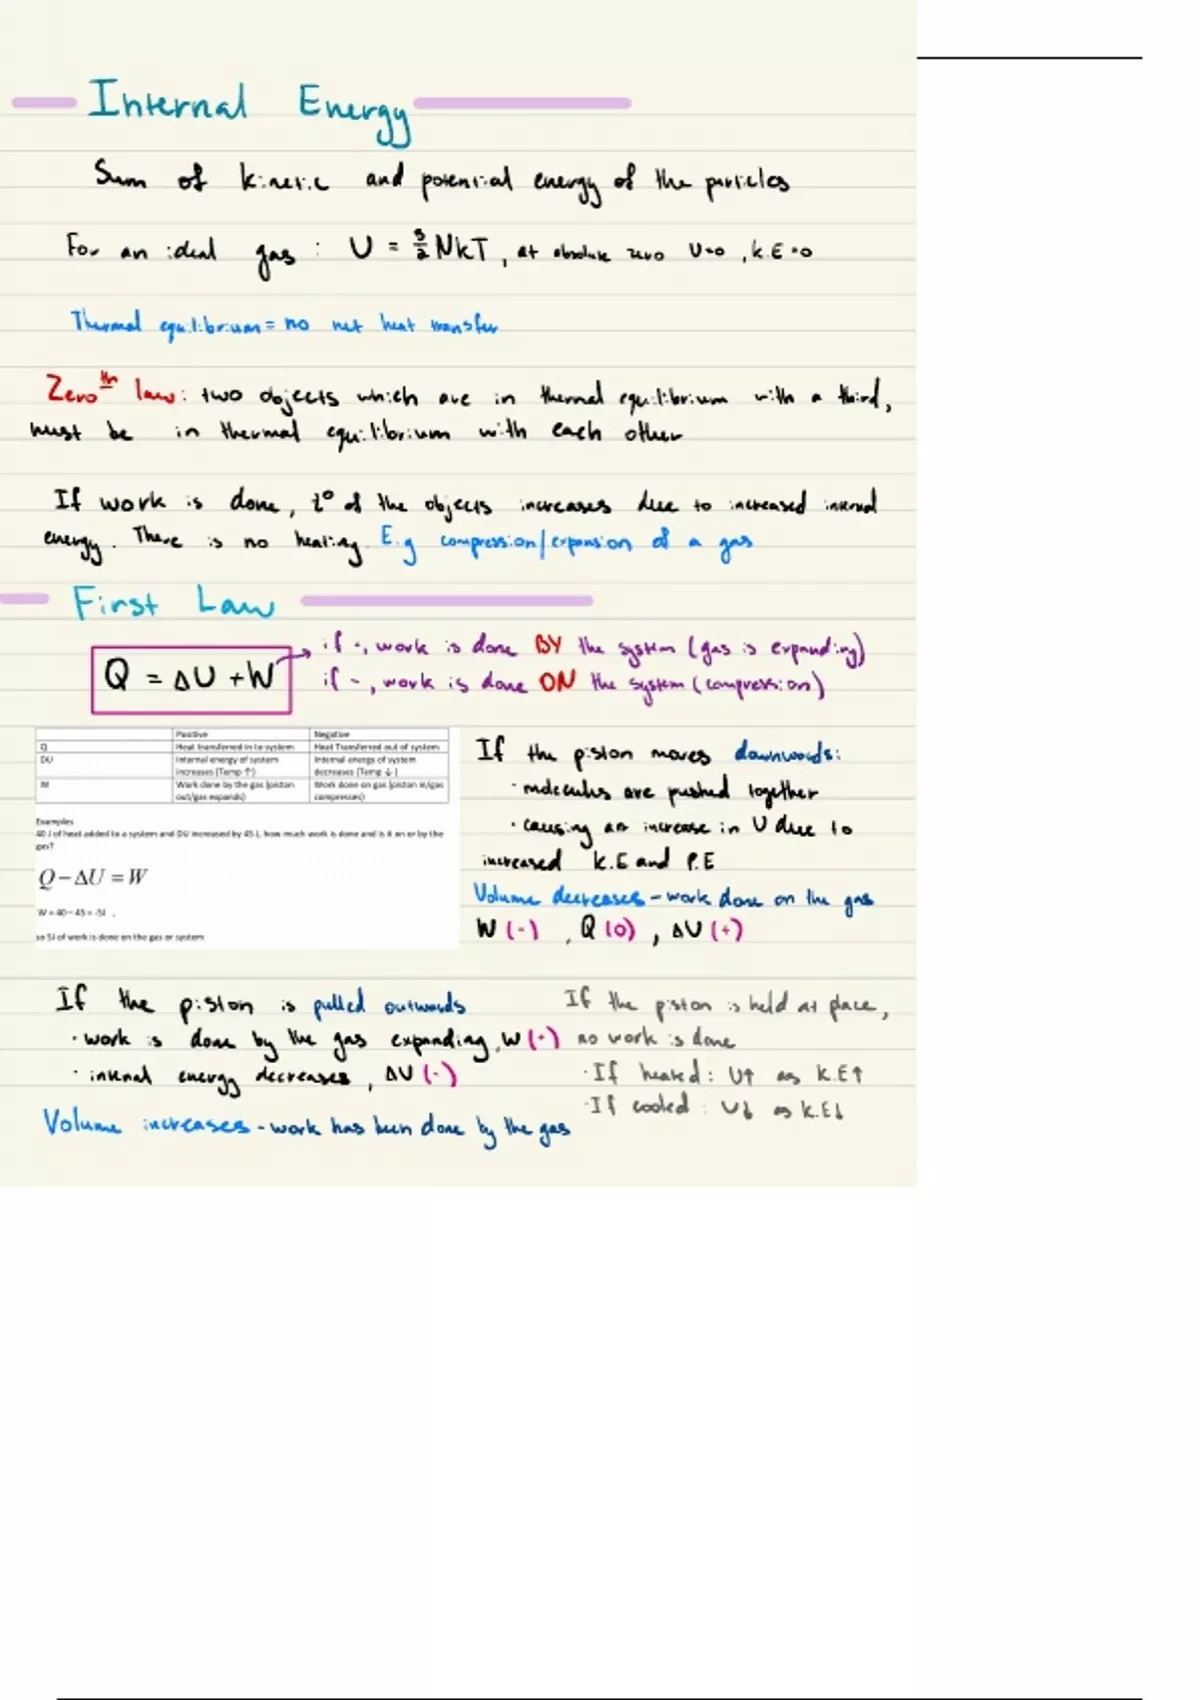 Internal Energy
Sum of kinetic and potential energy of the particles
For an ideal gas : U = 3/2 NkT, at absolute zero U=0, k.E=0
Thermal equilibrium = no net heat transfer
Zeroth law: two objects which are in thermal equilibrium with a third,
must be in thermal equilibrium with each other
If work is done, t° of the objects increases due to increased internal
energy. There is no heating. E.g compression/expansion of a gas
First Law
Q = ΔU + W
if +, work is done BY the system (gas is expanding)
if -, work is done ON the system (compression)
Positive Negative
Q Heat transferred in to system Heat Transferred out of system
DU Internal energy of system Internal energy of system
increases (Temp ↑) decreases (Temp ↓)
W Work done by the gas (piston Work done on gas (piston in/gas
out/gas expands) compresses)
Examples
40 J of heat added to a system and DU increased by 45 J, how much work is done and is it on or by the
gas?
Q – ΔU = W
W = 40 – 45 = -5J .
so 5J of work is done on the gas or system
If the piston moves downwards:
· molecules are pushed together
· causing an increase in U due to
increased k.E and P.E
Volume decreases - work done on the gas
W (-) , Q (0) , ΔU (+)
If the piston is pulled outwards
· work is done by the gas expanding, W (+)
· internal energy decreases, ΔU (-)
Volume increases - work has been done by the gas
If the piston is held at place,
no work is done
· If heated : U↑ as K.E↑
· If cooled : U↓ as K.E↓